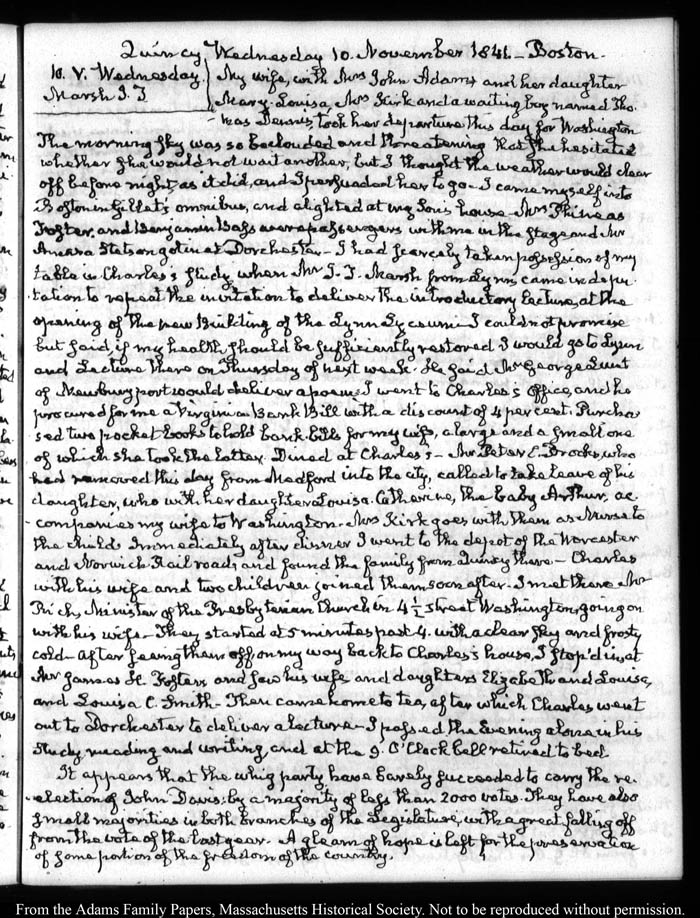 Quincy Wednesday 10. November 1841. – Boston.
10. V. Wednesday. My wife, with Mrs John Adams and her daughter
Marsh J. J Mary-Louisa, Mrs Kirk and a waiting boy named Tho-
mas Dennis, took her departure this day for Washington
The morning sky was so beclouded and threatening that she hesitated
whether she would not wait another, but I thought the weather would clear
off before night as it did, and I persuaded her to go – I came myself into
Boston in Gillet's omnibus, and alighted at my Son's house – Mrs Phineas
Foster, and Benjamin Bass were passengers with me in the stage and Mr
Amasa Stetson got in at Dorchester – I had scarcely taken possession of my
table in Charles's study, when Mr J. J. Marsh from Lynn came in depu-
tation to repeat the invitation to deliver the introductory lecture, at the
opening of the new Building of the Lynn Lyceum – I could not promise
but said, if my health should be sufficiently restored I would go to Lynn
and Lecture there on Thursday of next week. He said Mr George Lunt
of Newburyport would deliver a poem. I went to Charles's Office, and he
procured for me a Virginia Bank Bill with a discount of 4 per cent. Purcha-
sed two pocket books to hold bank bills for my wife, a large and a small one
of which she took the latter. Dined at Charles's – Mr Peter C. Brooks, who
had removed this day from Medford into the city, called to take leave of his
daughter, who with her daughter Louisa-Catherine, the baby Arthur, ac-
companies my wife to Washington. Mrs Kirk goes with them as Nurse to
the child. Immediately after dinner I went to the depot of the Worcester
and Norwich Rail road, and found the family from Quincy there – Charles
with his wife and two children joined them soon after. I met there Mr
Rich, Minister of the Presbyterian Church in 4½ street Washington, going on
with his wife – They started at 5 minutes past 4. with a clear sky and frosty
cold – After seeing them off on my way back to Charles's house, I stop'd in at
Mr James H. Foster's and saw his wife and daughters Elizabeth and Louisa,
and Louisa C. Smith – Then came home to tea, after which Charles went
out to Dorchester to deliver a lecture – I passed the Evening alone in his
study reading and writing and at the 9. O'Clock bell retired to bed
It appears that the whig party have barely succeeded to carry the re-
election of John Davis, by a majority of less than 2000 votes. They have also
small majorities in both branches of the Legislature, with a great falling off
from the vote of the last year. A gleam of hope is left for the preservation
of some portion of the freedom of the country.
From the Adams Family Papers, Massachusetts Historical Society. Not to be reproduced without permission.